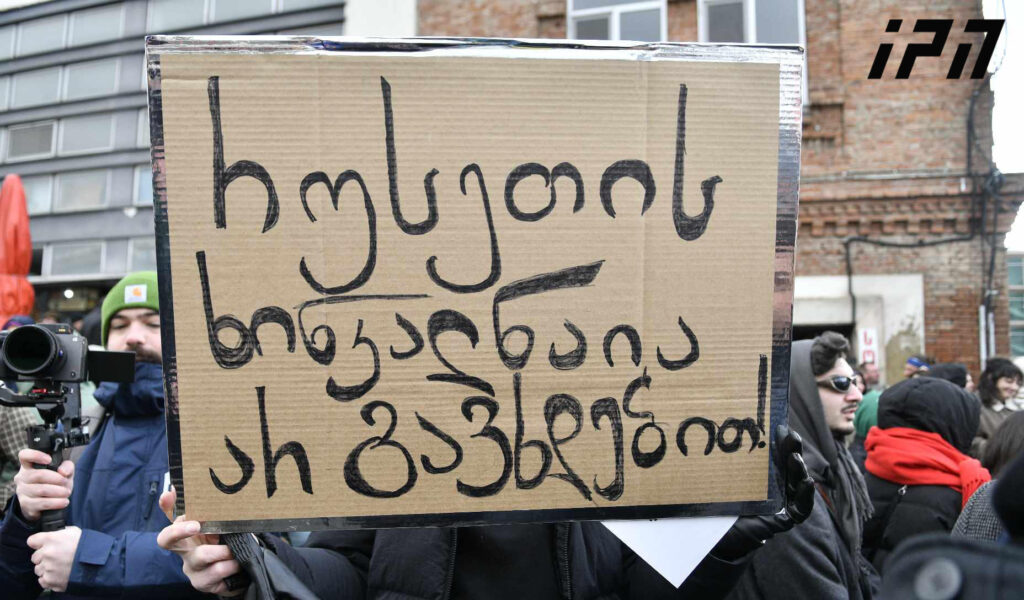 IPN
რუსეთის
ხინკალნაია
არ გავხდებით!